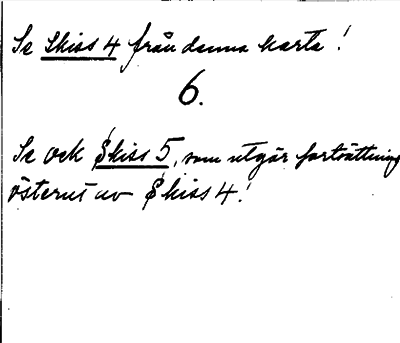 Se Skiss 4 från denna karta!
6.
Se ock Skiss 5, som utgör fortsättning
österut av Skiss 4!